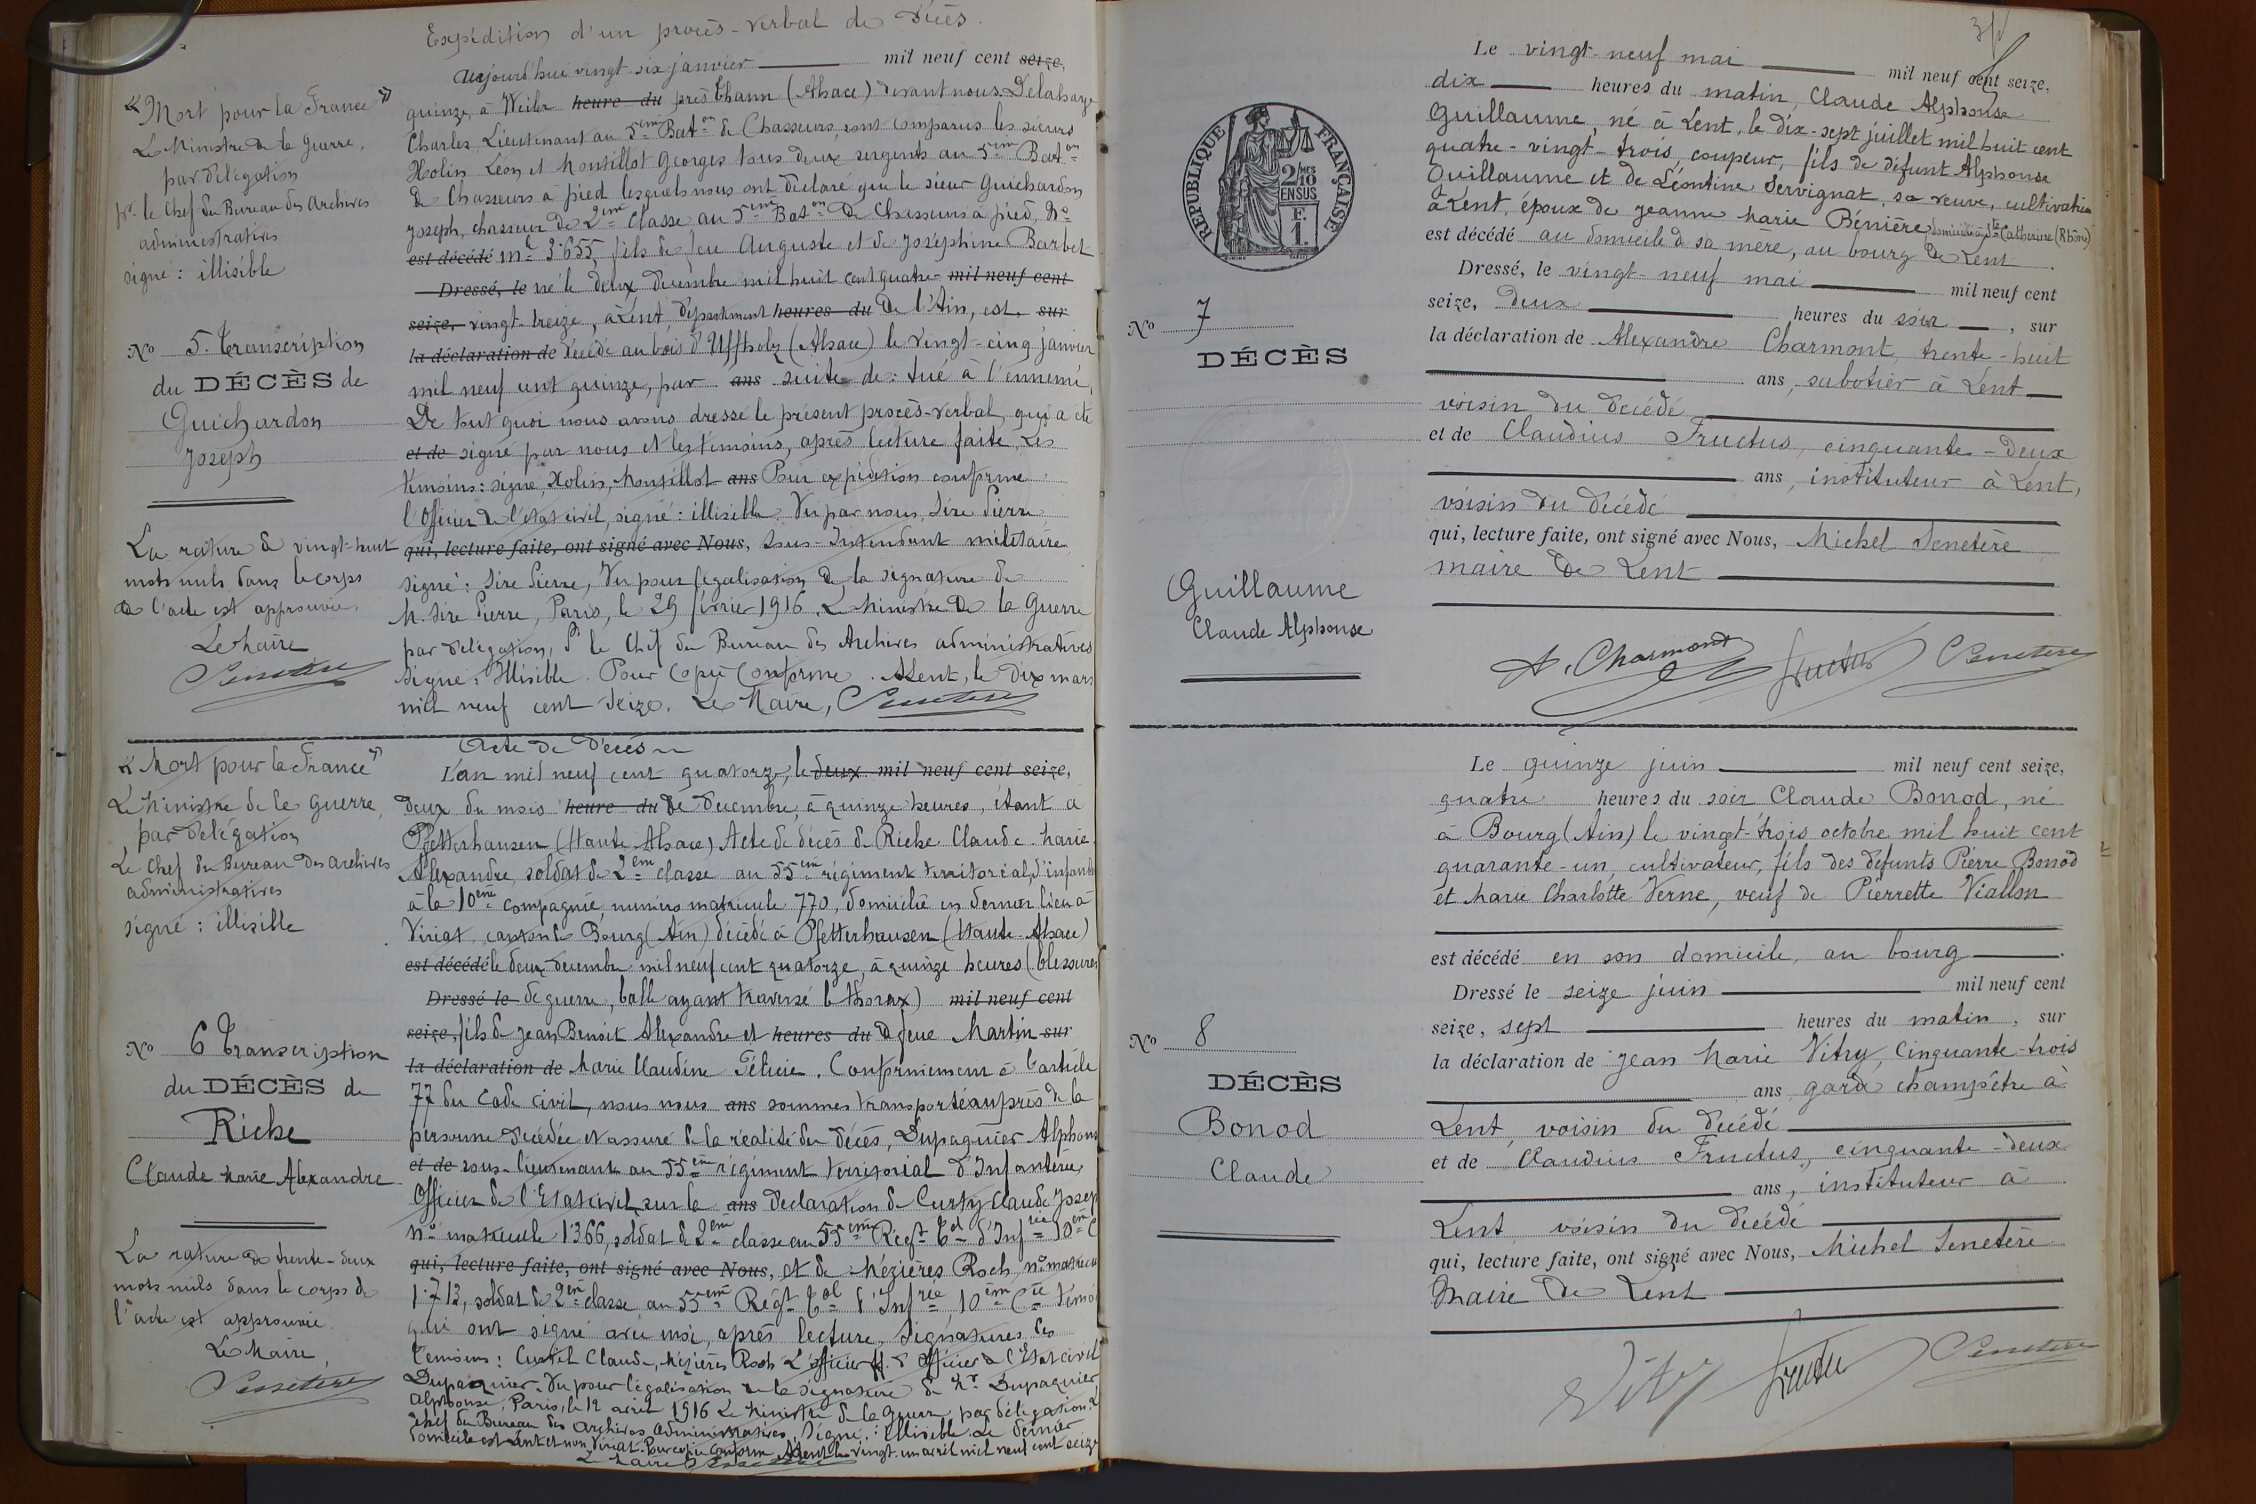 Expédition d'un procès-verbal de décès.
Aujourd'hui vingt six janvier mil neuf cent seize,
quinze, à Weiler heure du près Thann (Alsace) devant nous Delahaye
Charles, Lieutenant au 5ème Baton de Chasseurs, sont comparus les sieurs
Holin Léon et Montillot Georges tous deux sergents au 5ème Baton
de Chasseurs à pied lesquels nous ont déclaré que le sieur Guichardon
Joseph, chasseur de 2ème Classe au 5ème Baton de Chasseurs à pied, No
est décédé mle 3655, fils de feu Auguste et de Joséphine Barbet
Dressé, le né le deux décembre mil huit cent quatre- mil neuf cent
seize, vingt-treize, à Lent, département heures du de l'Ain, est, sur
la déclaration de décédé au bois d'Uffholz (Alsace) le vingt-cinq janvier
mil neuf cent quinze, par ans suite de : tué à l'ennemi,
De tout quoi nous avons dressé le présent procès-verbal, qui a été
et de signé par nous et les témoins, après lecture faite, Les
témoins : signé, Holin, Montillot ans Pour expédition conforme
l'Officier de l'état civil, signé : illisible. Vu par nous, Sire Pierre
qui, lecture faite, ont signé avec Nous, Sous-Intendant militaire
signé : Sire Pierre, Vu pour légalisation de la signature de
M. Sire Pierre, Paris, le 29 février 1916. Le Ministre de la Guerre
par délégation, Pr le Chef du Bureau des Archives administratives
signé : Illisible. Pour Copie Conforme. A Lent, le dix mars
mil neuf cent seize. Le Maire, Senetère
« Mort pour la France »
Le Ministre de la guerre,
par délégation
pr. le Chef du Bureau des Archives
administratives
signé : illisible
No 5. Transcription
du DÉCÈS de
Guichardon
Joseph
La rature de vingt-huit
mots nuls dans le corps
de l'acte est approuvée.
Le Maire
Senetère
Acte de décès
L'an mil neuf cent quatorze, le deux mil neuf cent seize,
deux du mois heure du de décembre, à quinze heures, étant à
Pfetterhausen (Haute Alsace) Acte de décès de Riche Claude Marie
Alexandre, soldat de 2ème classe au 55ème régiment territorial d'infanterie
à la 10ème compagnie, numéro matricule 770, domicilié en dernier lieu à
Viriat canton de Bourg (Ain) décédé à Pfetterhausen (Haute-Alsace)
est décédé le deux décembre mil neuf cent quatorze, à quinze heures (blessures
Dressé le de guerre, balle ayant traversé le thorax) mil neuf cent
seize, fils de Jean Benoit Alexandre et heures du de feue Martin sur
la déclaration de Marie Claudine Félicie. Conformément à l'article
77 du Code civil, nous nous ans sommes transporté auprès de la
personne décédée et assuré de la réalité du décès, Dupaquier Alphonse
et de sous-lieutenant au 55ème régiment territorial d'Infanterie,
Officier de l'Etat civil, sur la ans déclaration de Curty Claude Joseph
No matricule 1366, soldat de 2ème classe au 55ème Régt Tal d'Infrie 10ème C
qui, lecture faite, ont signé avec Nous, et de Mézières Roch, no matricule
1.713, soldat de 2ème classe au 55ème Régt Tal d'Infrie 10ème Cie témoins
qui ont signé avec moi, après lecture, Signatures des
témoins : Curtil Claude, Mézières Roch L'officier ff. d'officier de l'Etat civil
Dupaquier. Vu pour légalisation de la signature de Mr Dupaquier
Alphonse, Paris, le 12 avril 1916 Le Ministre de la Guerre, par délégation. Le
chef du Bureau des Archives Administratives, Signé : Illisible. Le dernier
domicile est Lent et non Viriat. Pour copie conforme A Lent le vingt-un avril mil neuf cent seize
Le Maire Senetère
« Mort pour la France »
Le Ministre de la Guerre,
par délégation
Le Chef du Bureau des Archives
administratives
signé : illisible
No 6 Transcription
du DÉCÈS de
Riche
Claude Marie Alexandre
La rature de trente-deux
mots nuls dans le corps de
l'acte est approuvée.
Le Maire,
Senetère
Le vingt-neuf mai mil neuf cent seize,
dix heures du matin, Claude Alphonse
Guillaume, né à Lent, le dix-sept juillet mil huit cent
quatre-vingt-trois, coupeur, fils de défunt Alphonse
Guillaume et de Léontine Servignat, sa veuve, cultivatrice
à Lent, époux de Jeanne Marie Bénière, domiciliée à Ste Catherine (Rhône)
est décédé au domicile de sa mère, au bourg de Lent.
Dressé, le vingt-neuf mai mil neuf cent
seize, deux heures du soir, sur
la déclaration de Alexandre Charmont, trente-huit
ans, sabotier à Lent
voisin du décédé
et de Claudius Fructus, cinquante-deux
ans, instituteur à Lent,
voisin du décédé
qui, lecture faite, ont signé avec Nous, Michel Senetère
maire de Lent
A. Charmont Fructus Senetère
RÉPUBLIQUE FRANÇAISE
2/10 MES
EN SUS
F.
1.
No 7
DÉCÈS
Guillaume
Claude Alphonse
Le quinze juin mil neuf cent seize,
quatre heures du soir Claude Bonod, né
à Bourg (Ain) le vingt-trois octobre mil huit cent
quarante-un, cultivateur, fils des défunts Pierre Bonod
et Marie Charlotte Verne, veuf de Pierrette Viallon
est décédé en son domicile, au bourg.
Dressé le seize juin mil neuf cent
seize, sept heures du matin, sur
la déclaration de Jean Marie Vitry, cinquante-trois
ans garde champêtre à
Lent, voisin du décédé
et de Claudius Fructus, cinquante-deux
ans, instituteur à
Lent voisin du décédé
qui, lecture faite, ont signé avec Nous, Michel Senetère
Maire de Lent
Vitry Fructus Senetère
No 8
DÉCÈS
Bonod
Claude